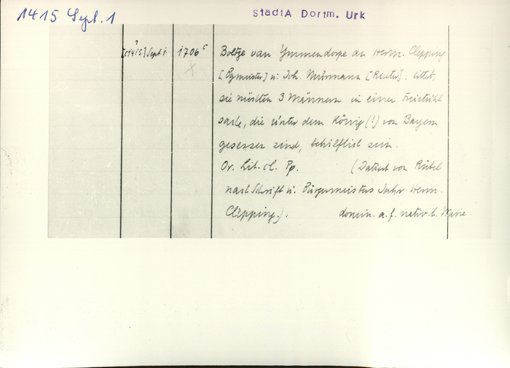 1415 Sept. 1
StadtA Dortm. Urk
[1415] Sept. 1
1706 c
Boltze van Ymmendorpe an Herm. Clepping
[Bgmeister] u. Joh. Murmann [Reutm.]: bittet,
sie möchten 3 Männern in einer Freistuhl
sache, die unter dem König (!) von Bayern
gesessen sind, behilflich sein.
Or. lit. cl. Pp. (Datiert von Rübel
nach Schrift u. Bürgermeister Jahr Herm.
Clepping.). domin. a. f. nativ. b. Marie